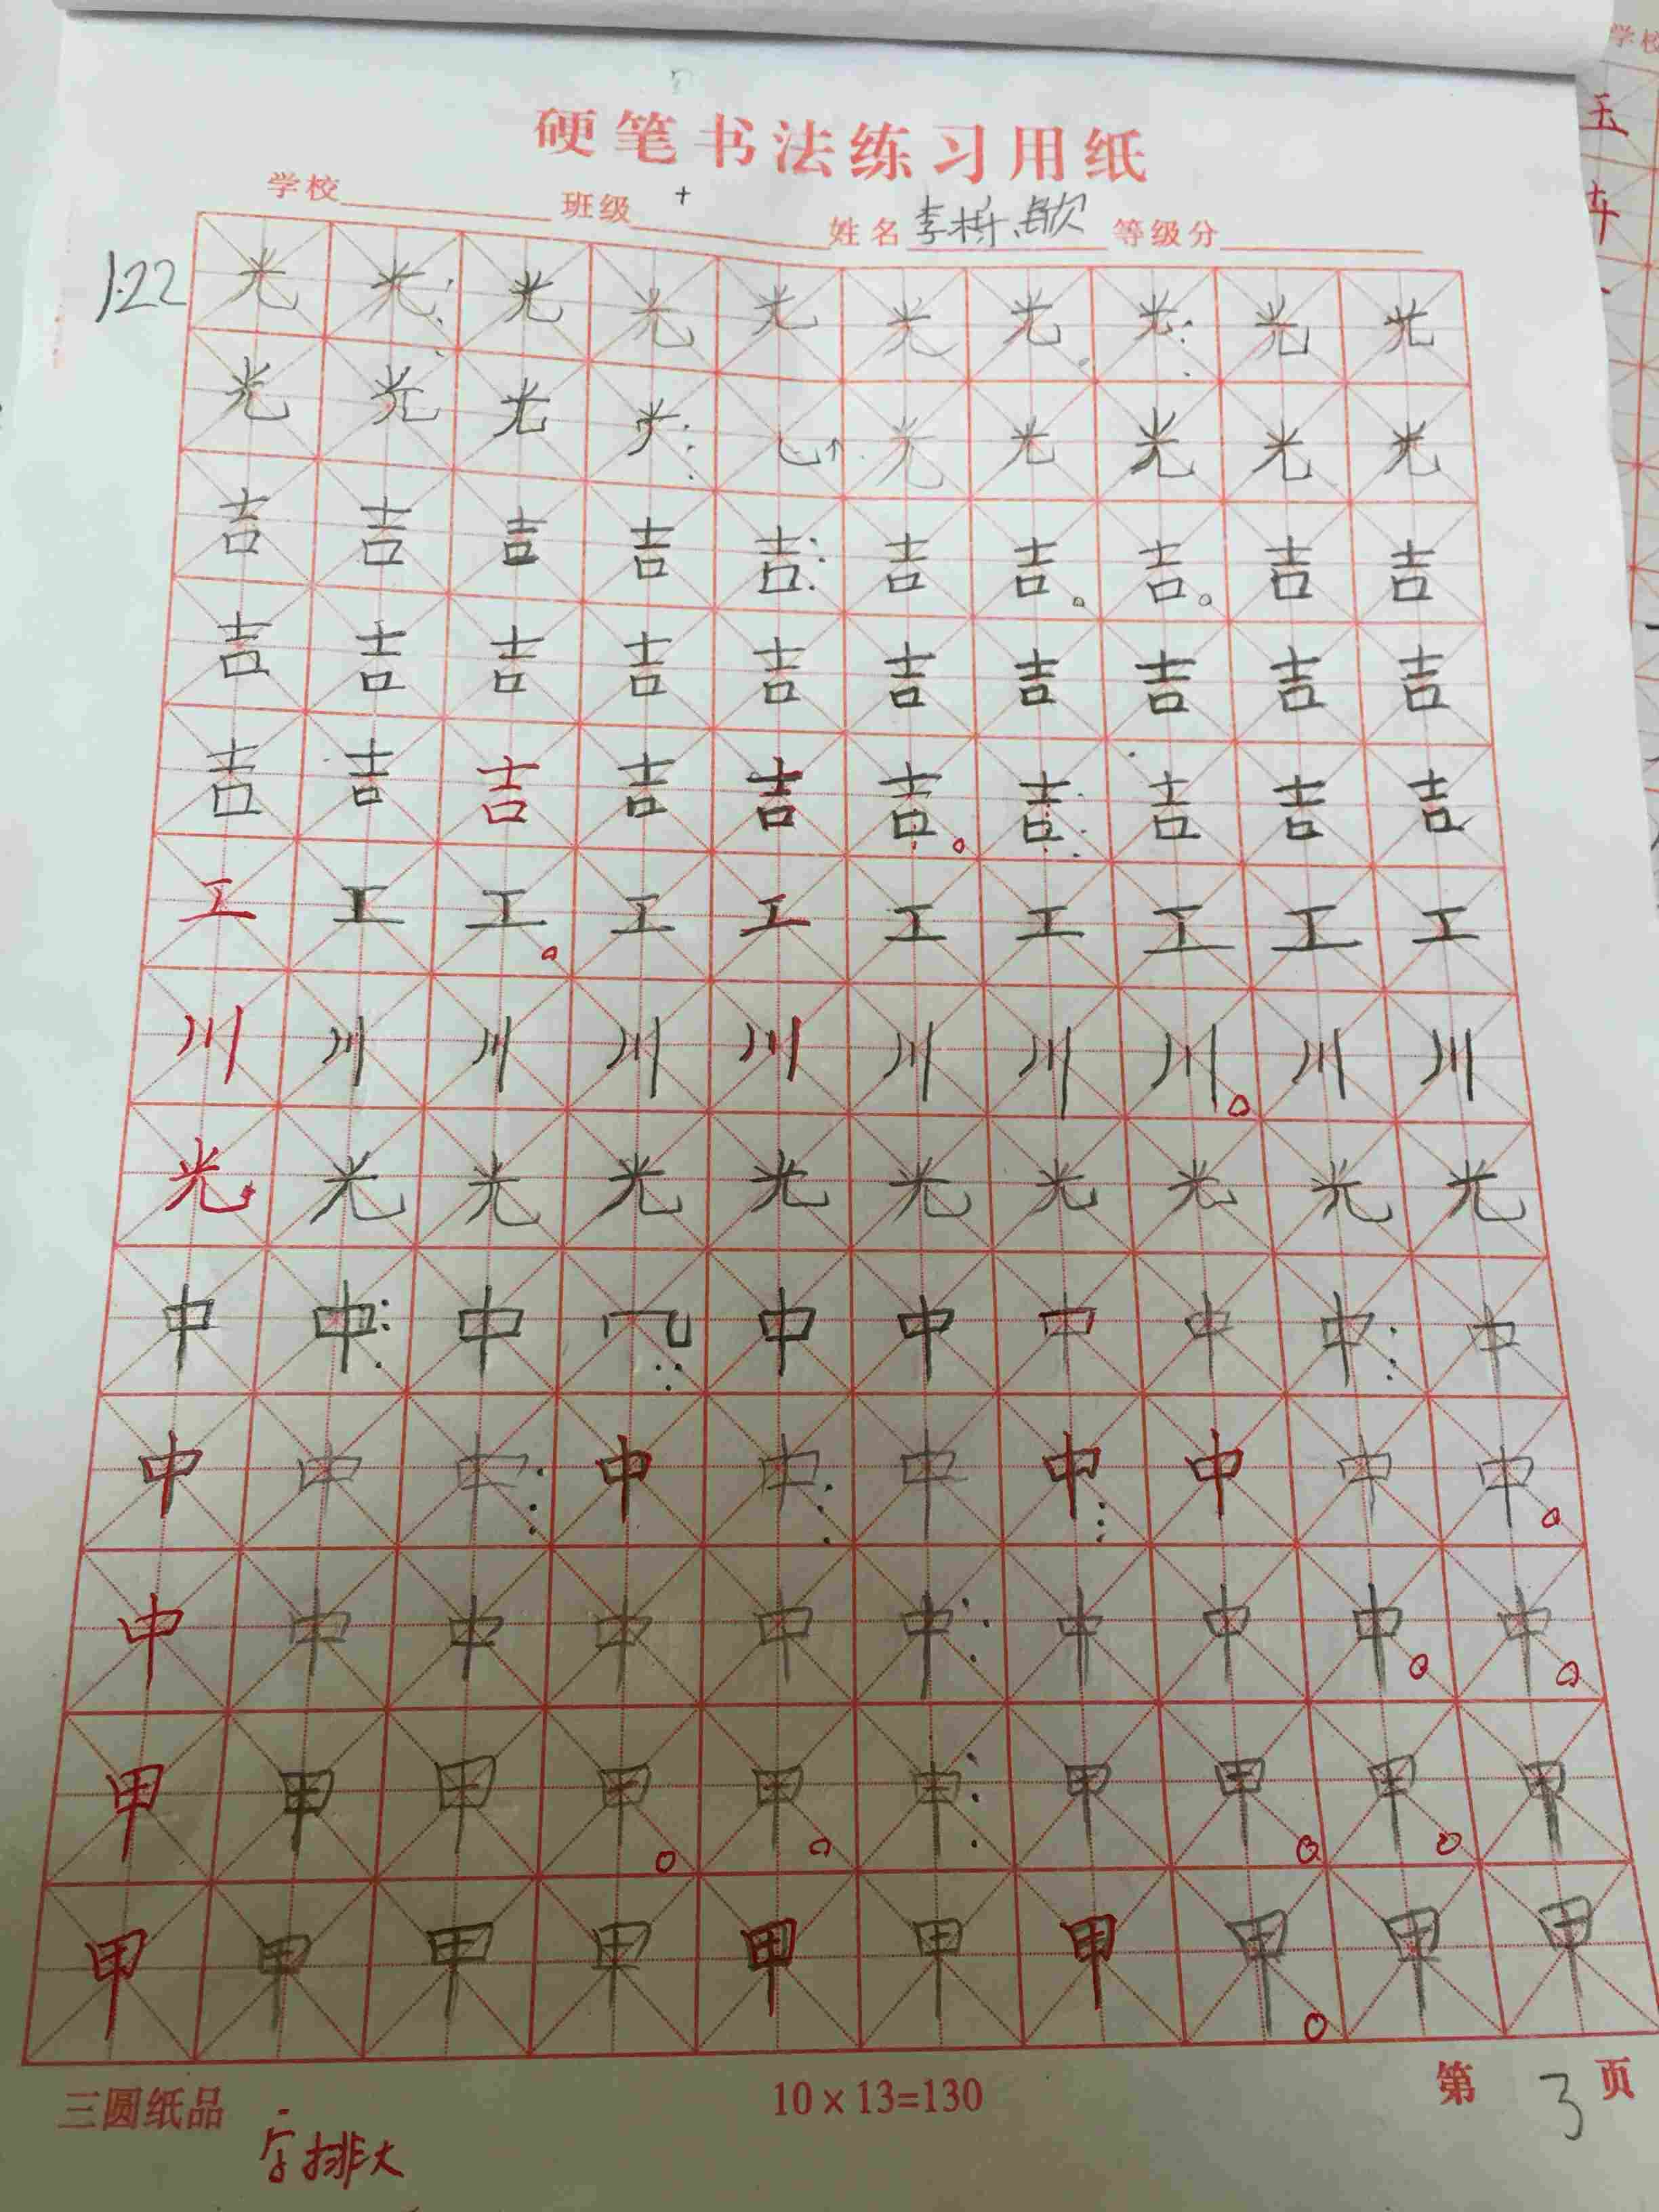 硬笔书法练习用纸
学校 班级 姓名 李 等级分
1.22 光光光光光光光光光光
光光光 光光光光光
吉吉吉吉吉吉吉吉吉吉
吉吉吉吉吉吉吉吉吉吉
吉吉吉吉吉吉吉吉吉吉
工工工工工工工工工工
川川川川川川川川川川
光光光光光光光光光光
中中中 中中中中中中
中中中中中中中中中中
中中中中中中中中中中
甲甲甲甲甲甲甲甲甲甲
甲甲甲甲甲甲甲甲甲甲
三圆纸品 10×13=130 第 3 页
字排大
学校